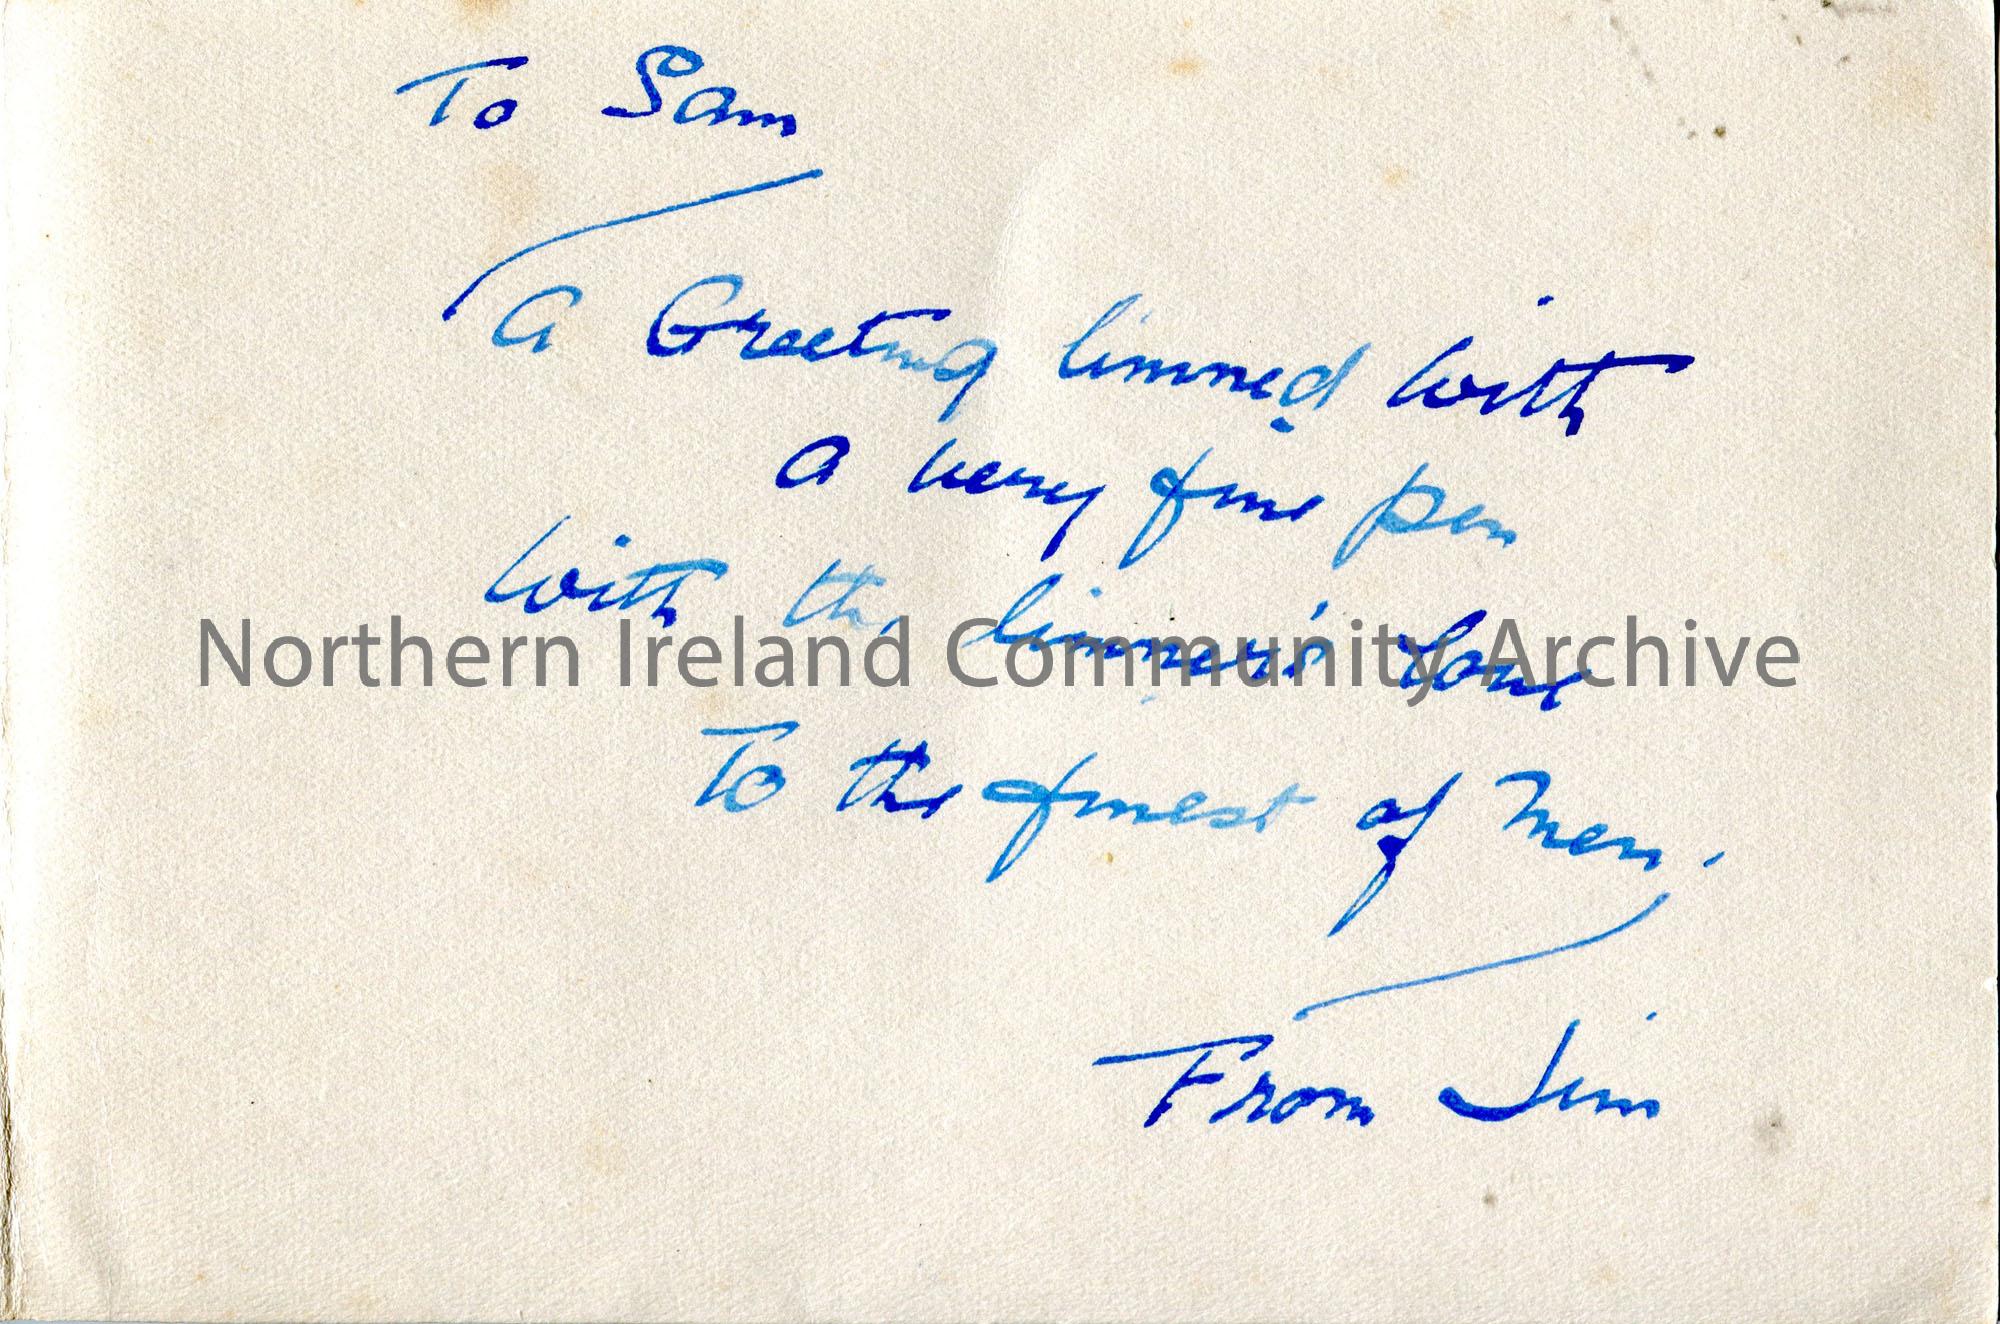 To Sam
A Greeting limned with
a very fine pen
With the limner's love
To the finest of Men.
From Jim
Northern Ireland Community Archive